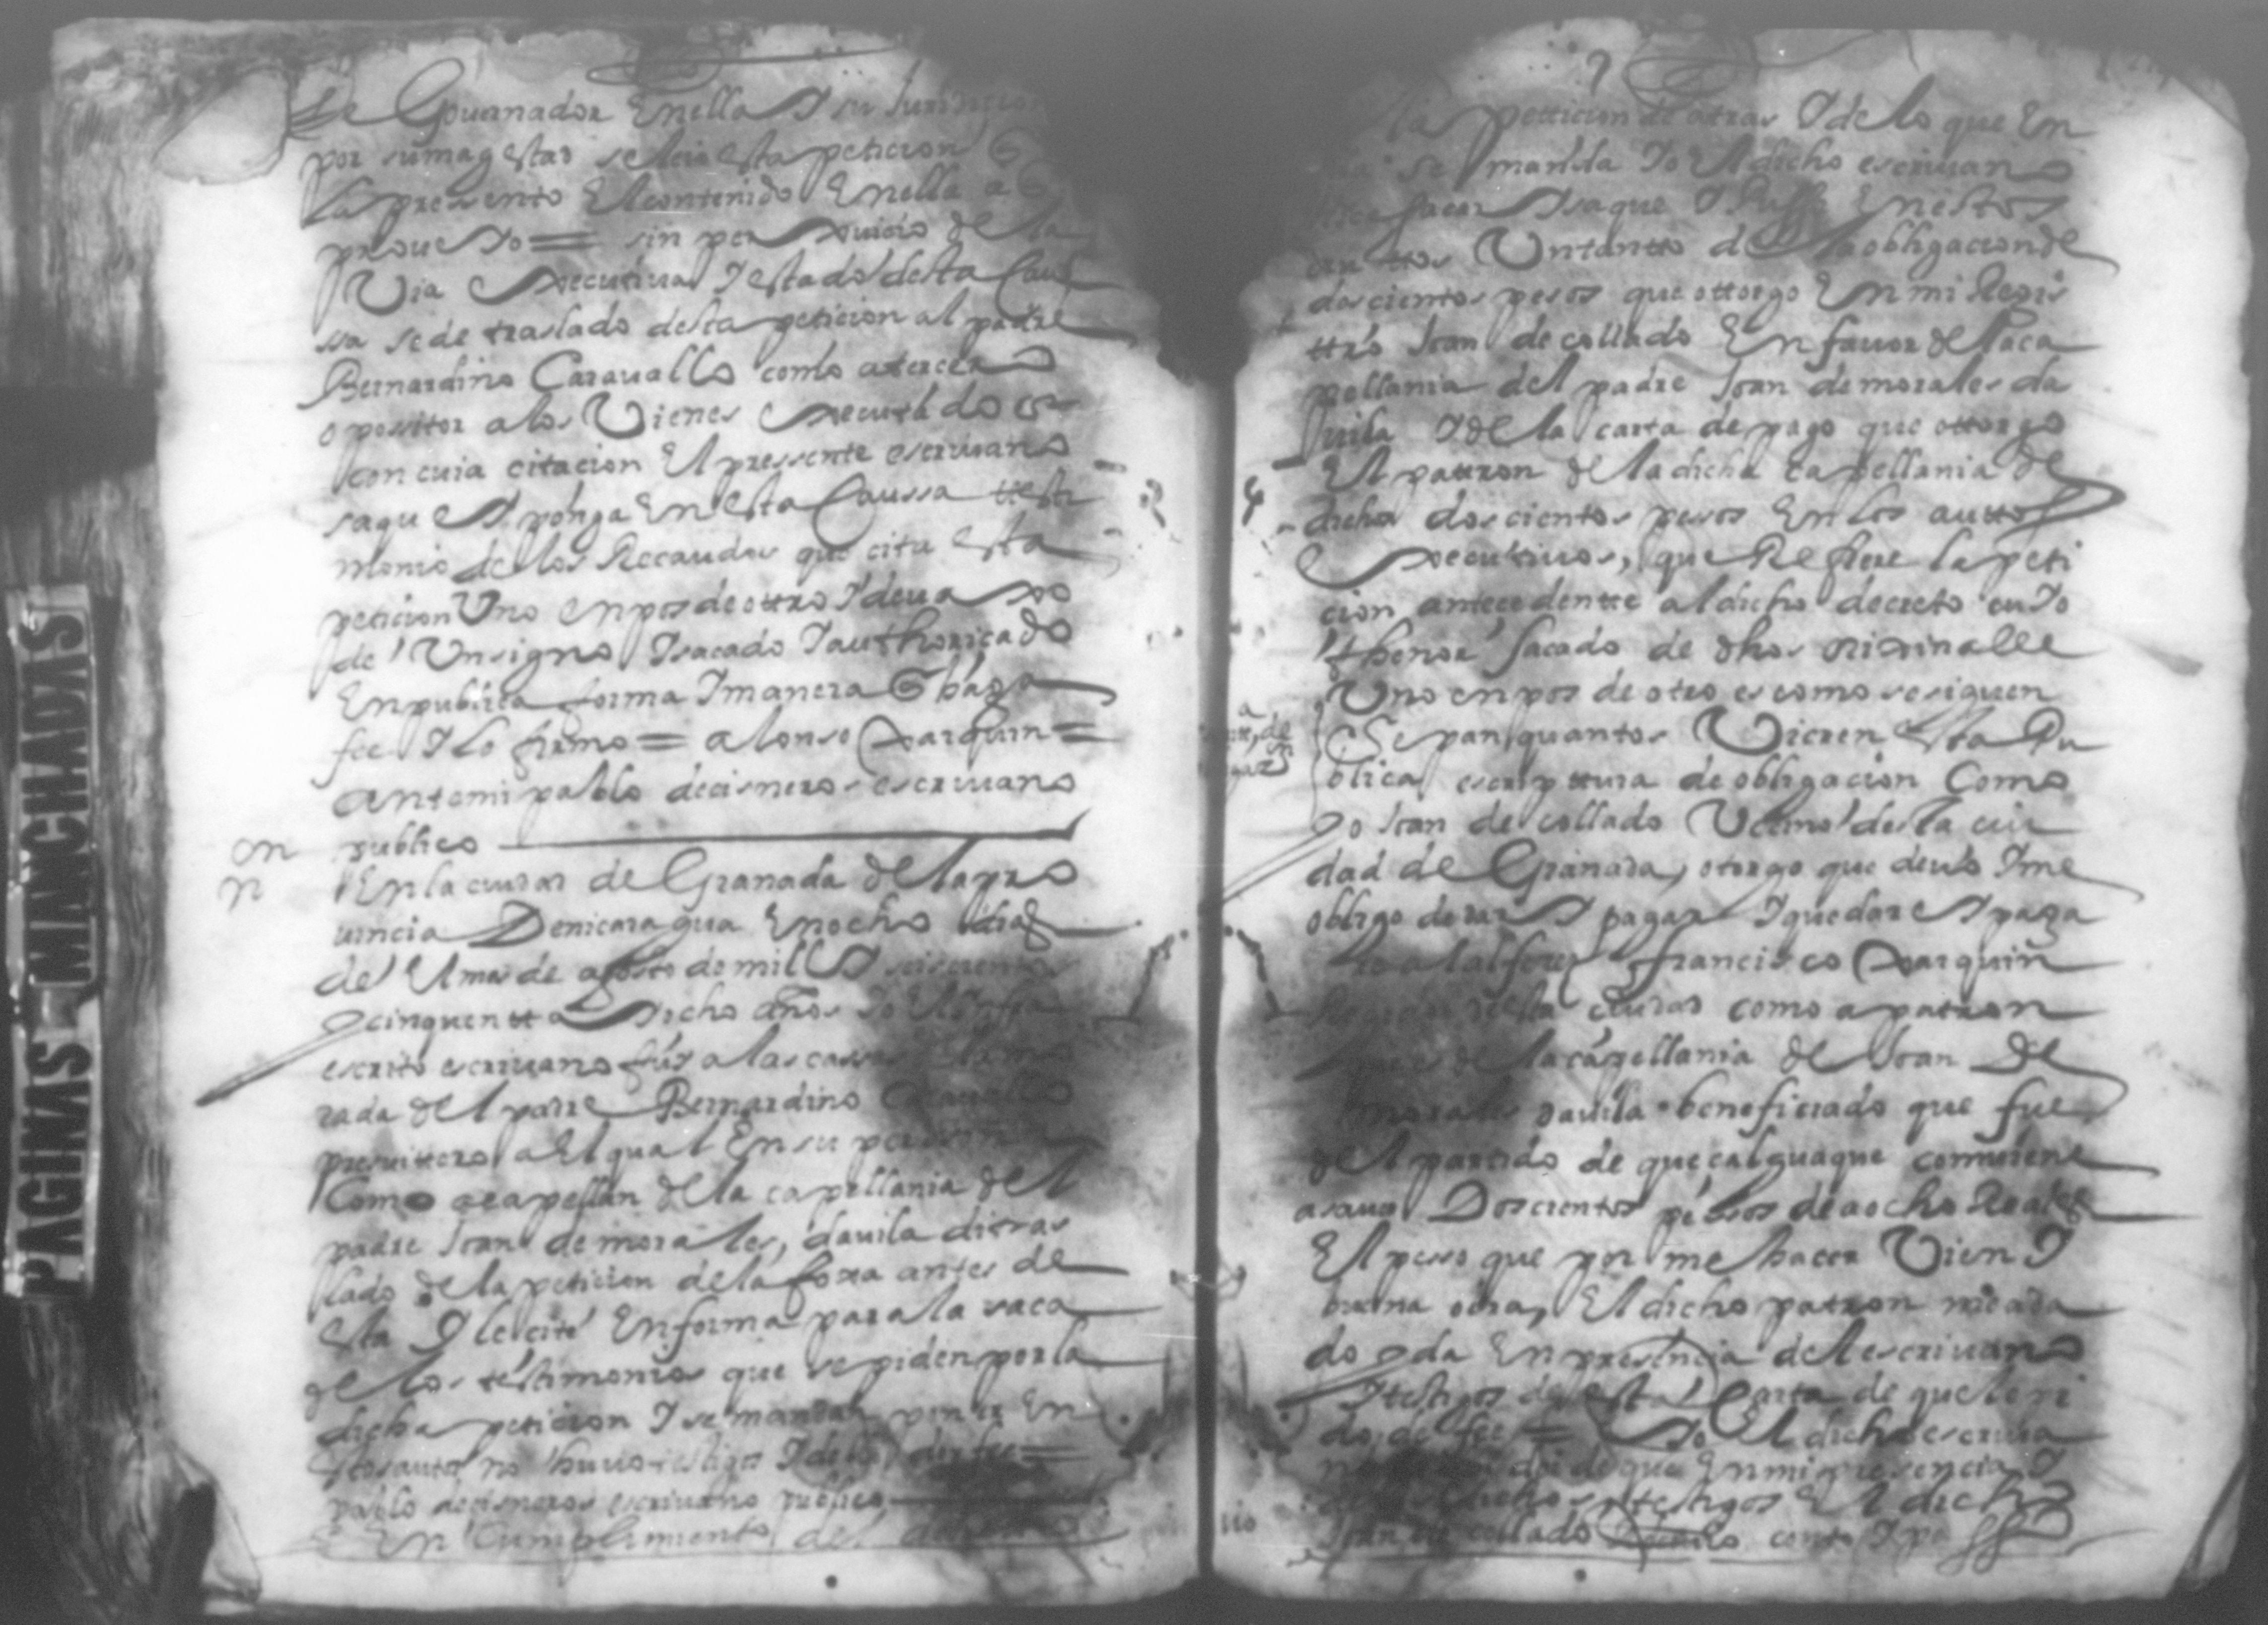 PAGINAS MANCHADAS
de Gouernador Enella I su Juridicion
por sumagestad se leio esta peticion
la pressento El contenido Enella
proueIo = sin perJuicio de la
Via Executiua I estado desta Cau
sa se de traslado desta peticion al padre
Bernardino Carauallo como a tercero
opositor a los Vienes Executados
con cuia citacion El pressente escriuano
saque I ponga En esta Caussa testi
monio de los Recaudos que cita esta
peticion Uno en pos de ottro I deuaxo
de Un signo I sacado I authoriçado
En publica forma I manera haga
fee I lo firmo = alonso Xarquin =
ante mi pablo de cisneros escriuano
publico
En la ciudad de Granada de la pro
uincia De nicaragua En ocho dias
del mes de agosto de mill I seiscientos
I cinquentta I ocho años Io El infra
escrito escriuano fui a las cassas de la mo
rada del padre Bernardino Carauallo
presuittero a El qual En su persona
Como a capellan de la capellania del
padre Joan de morales, dauila di tras
lado de la peticion de la foxa antes de
esta I le cité En forma para la saca
de los testimonios que se piden por la
dicha peticion I se mandan poner En
estos autos no huuo testigos I dello doi fee =
pablo de cisneros escriuano publico
En Cumplimiento del
la petticion de atras I de lo que En
se manda Io El dicho escriuano
hice sacar I saque I puse En estos
auttos Un tantto de la obligacion de
doscientos pesos que ottorgo En mi Regis
ttro Joan de collado En fauor de la ca
pellania del padre Joan de morales da
uila I de la carta de pago que ottorgo
El pattron de la dicha capellania de
dichos doscientos pesos En los auttos
Executiuos, que Refiere la peti
cion antecedentte al dicho decreto cuIo
thenor sacado de dhos orixinalle
Uno en pos de otro es como se siguen
Sepan quantos Vieren esta Pu
blica escripttura de obligacion Como
Io Joan de collado Vecino desta ciu
dad de Granada, otorgo que deuo I me
obligo de dar I pagar I que dare I paga
re al alferez francisco Xarquin
Regidor desta ciudad como a patron
que es de la capellania de Joan De
morales dauila beneficiado que fue
del partido de queçalguaque conuiene
a sauer Doscientos pessos de a ocho Reales
El peso que por me hacer Vien I
buena obra, El dicho patron me a da
do I da En presencia del escriuano
I testigos de esta Carta de que le pi
do de fee = Io El dicho escriua
no doi de que En mi presencia I
de los dichos testigos El dicho
Joan de collado conto I pa